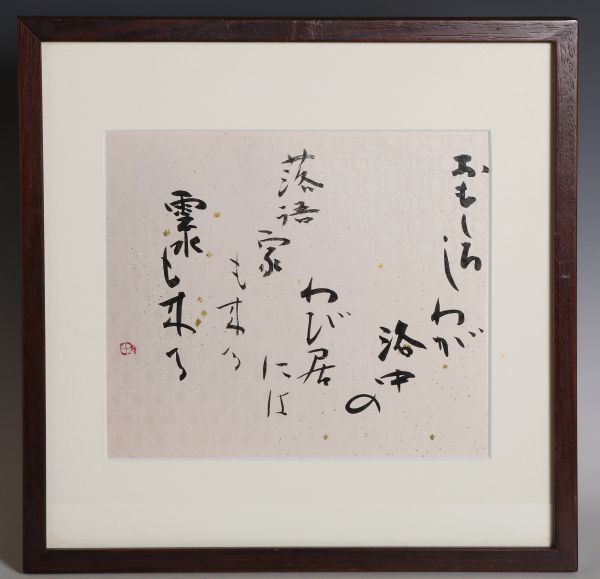 おもしろしわが
洛中の
わび居には
落語家
も来る
雲水も来る